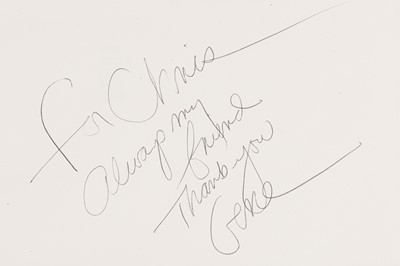 For Chris
Always my
friend
Thank-you
Gene